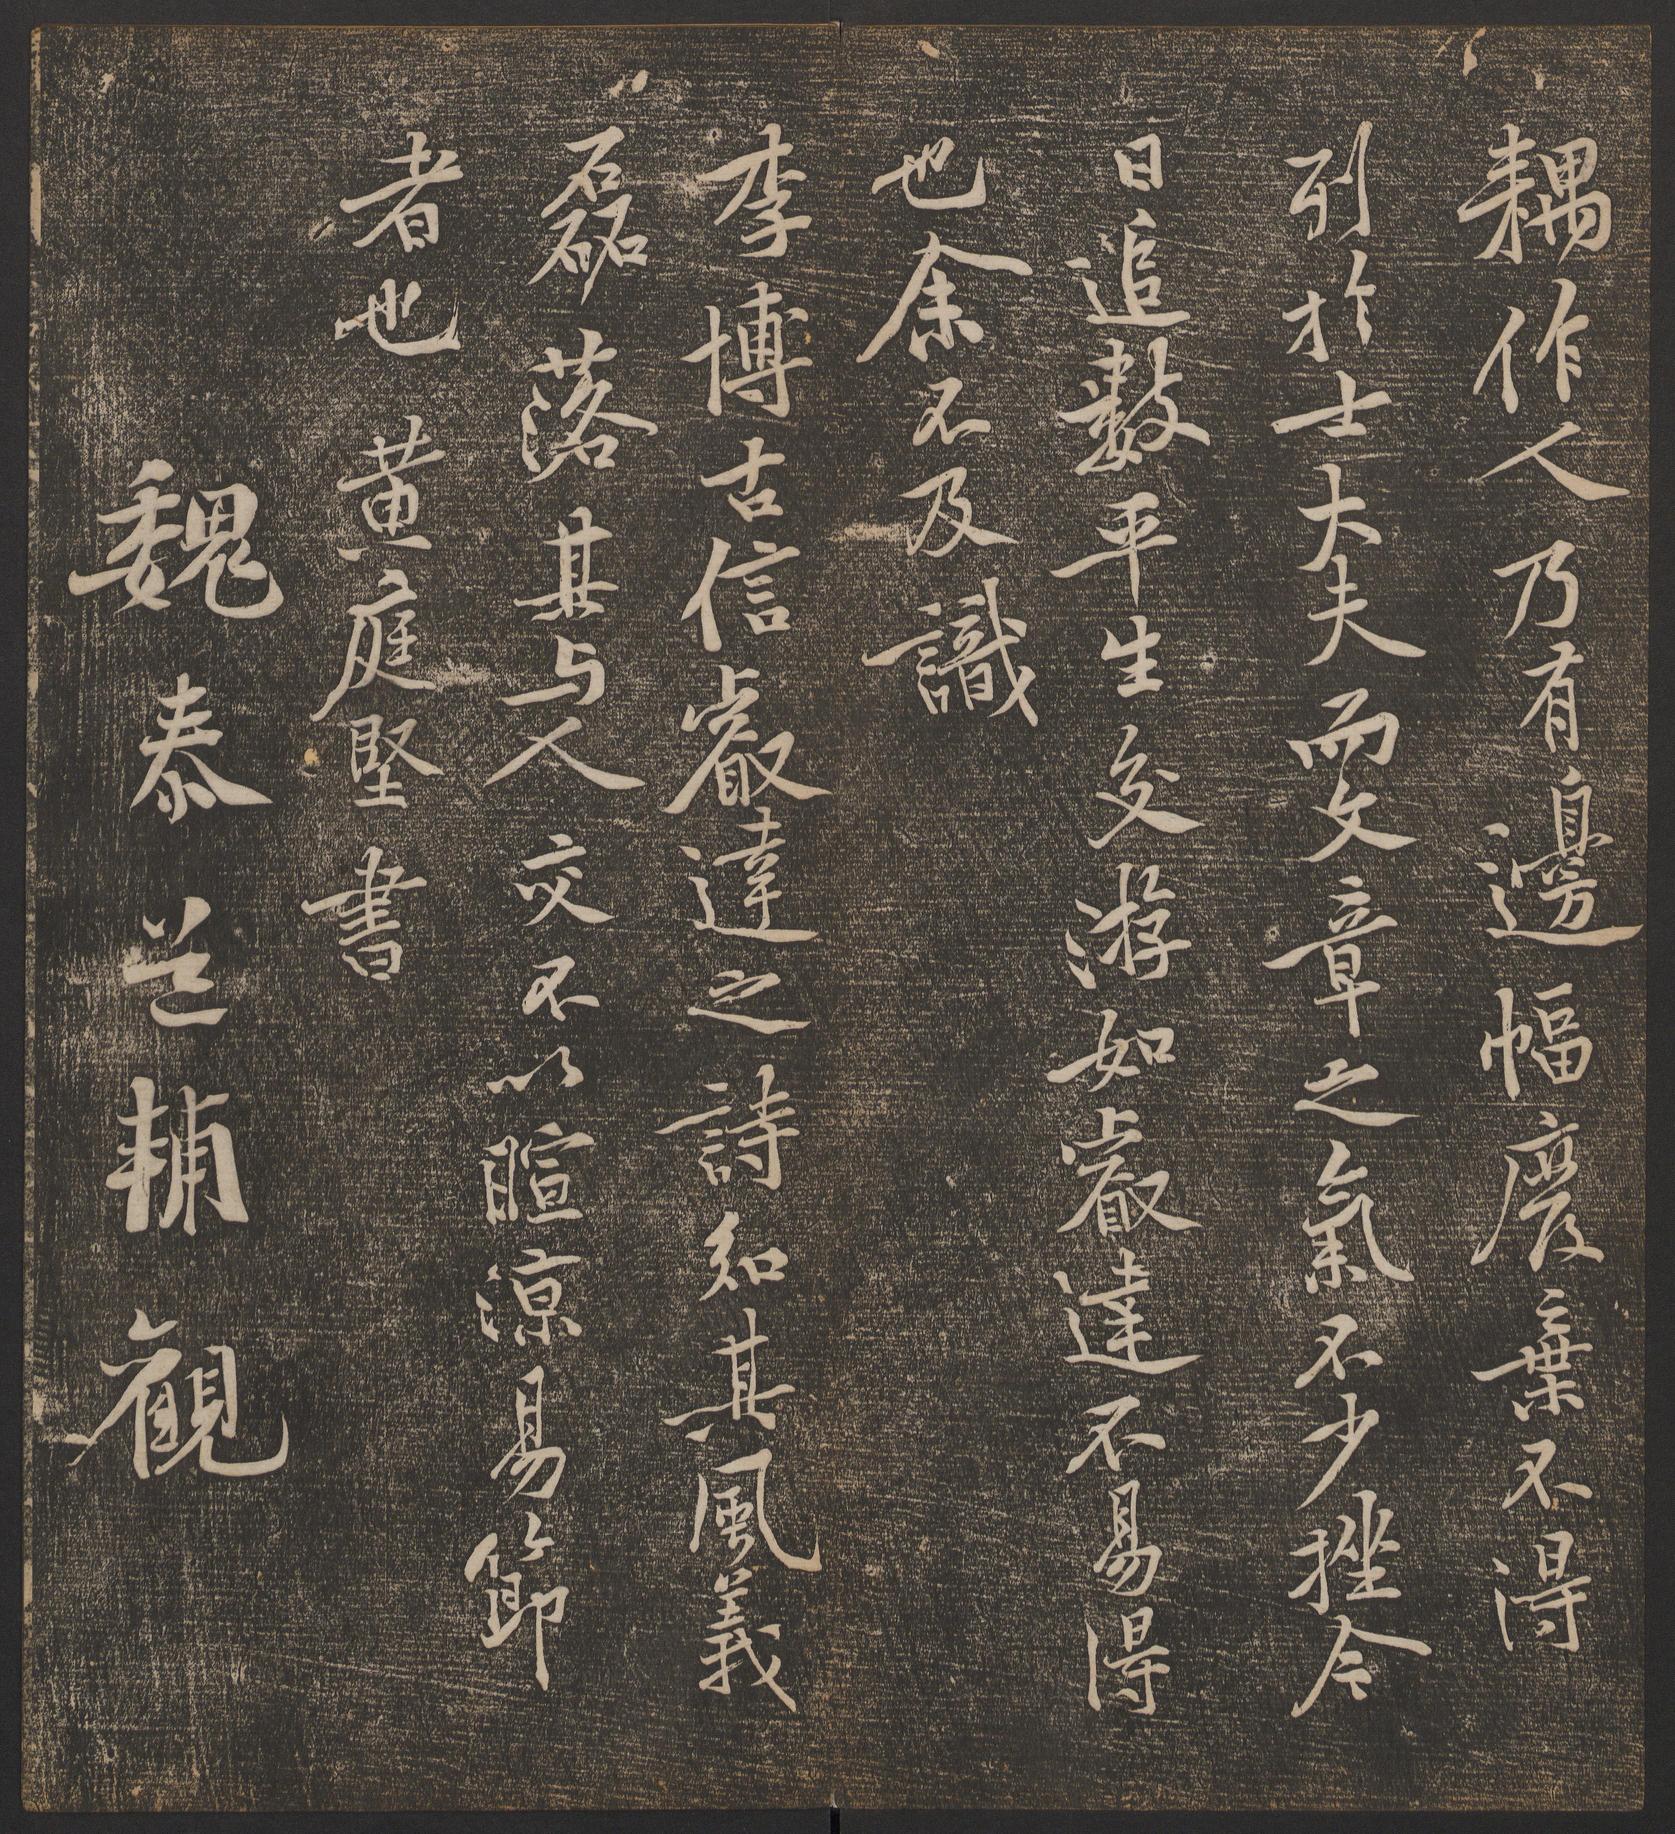 耦作人乃有邊幅廢棄不得
列於士大夫而文章之氣不少挫今
日追數平生交游如叡達不易得
也余不及識
李博古信叡達之詩知其風義
磊落其与人交不以暄涼易節
者也 黄庭堅書
魏泰 道輔 觀